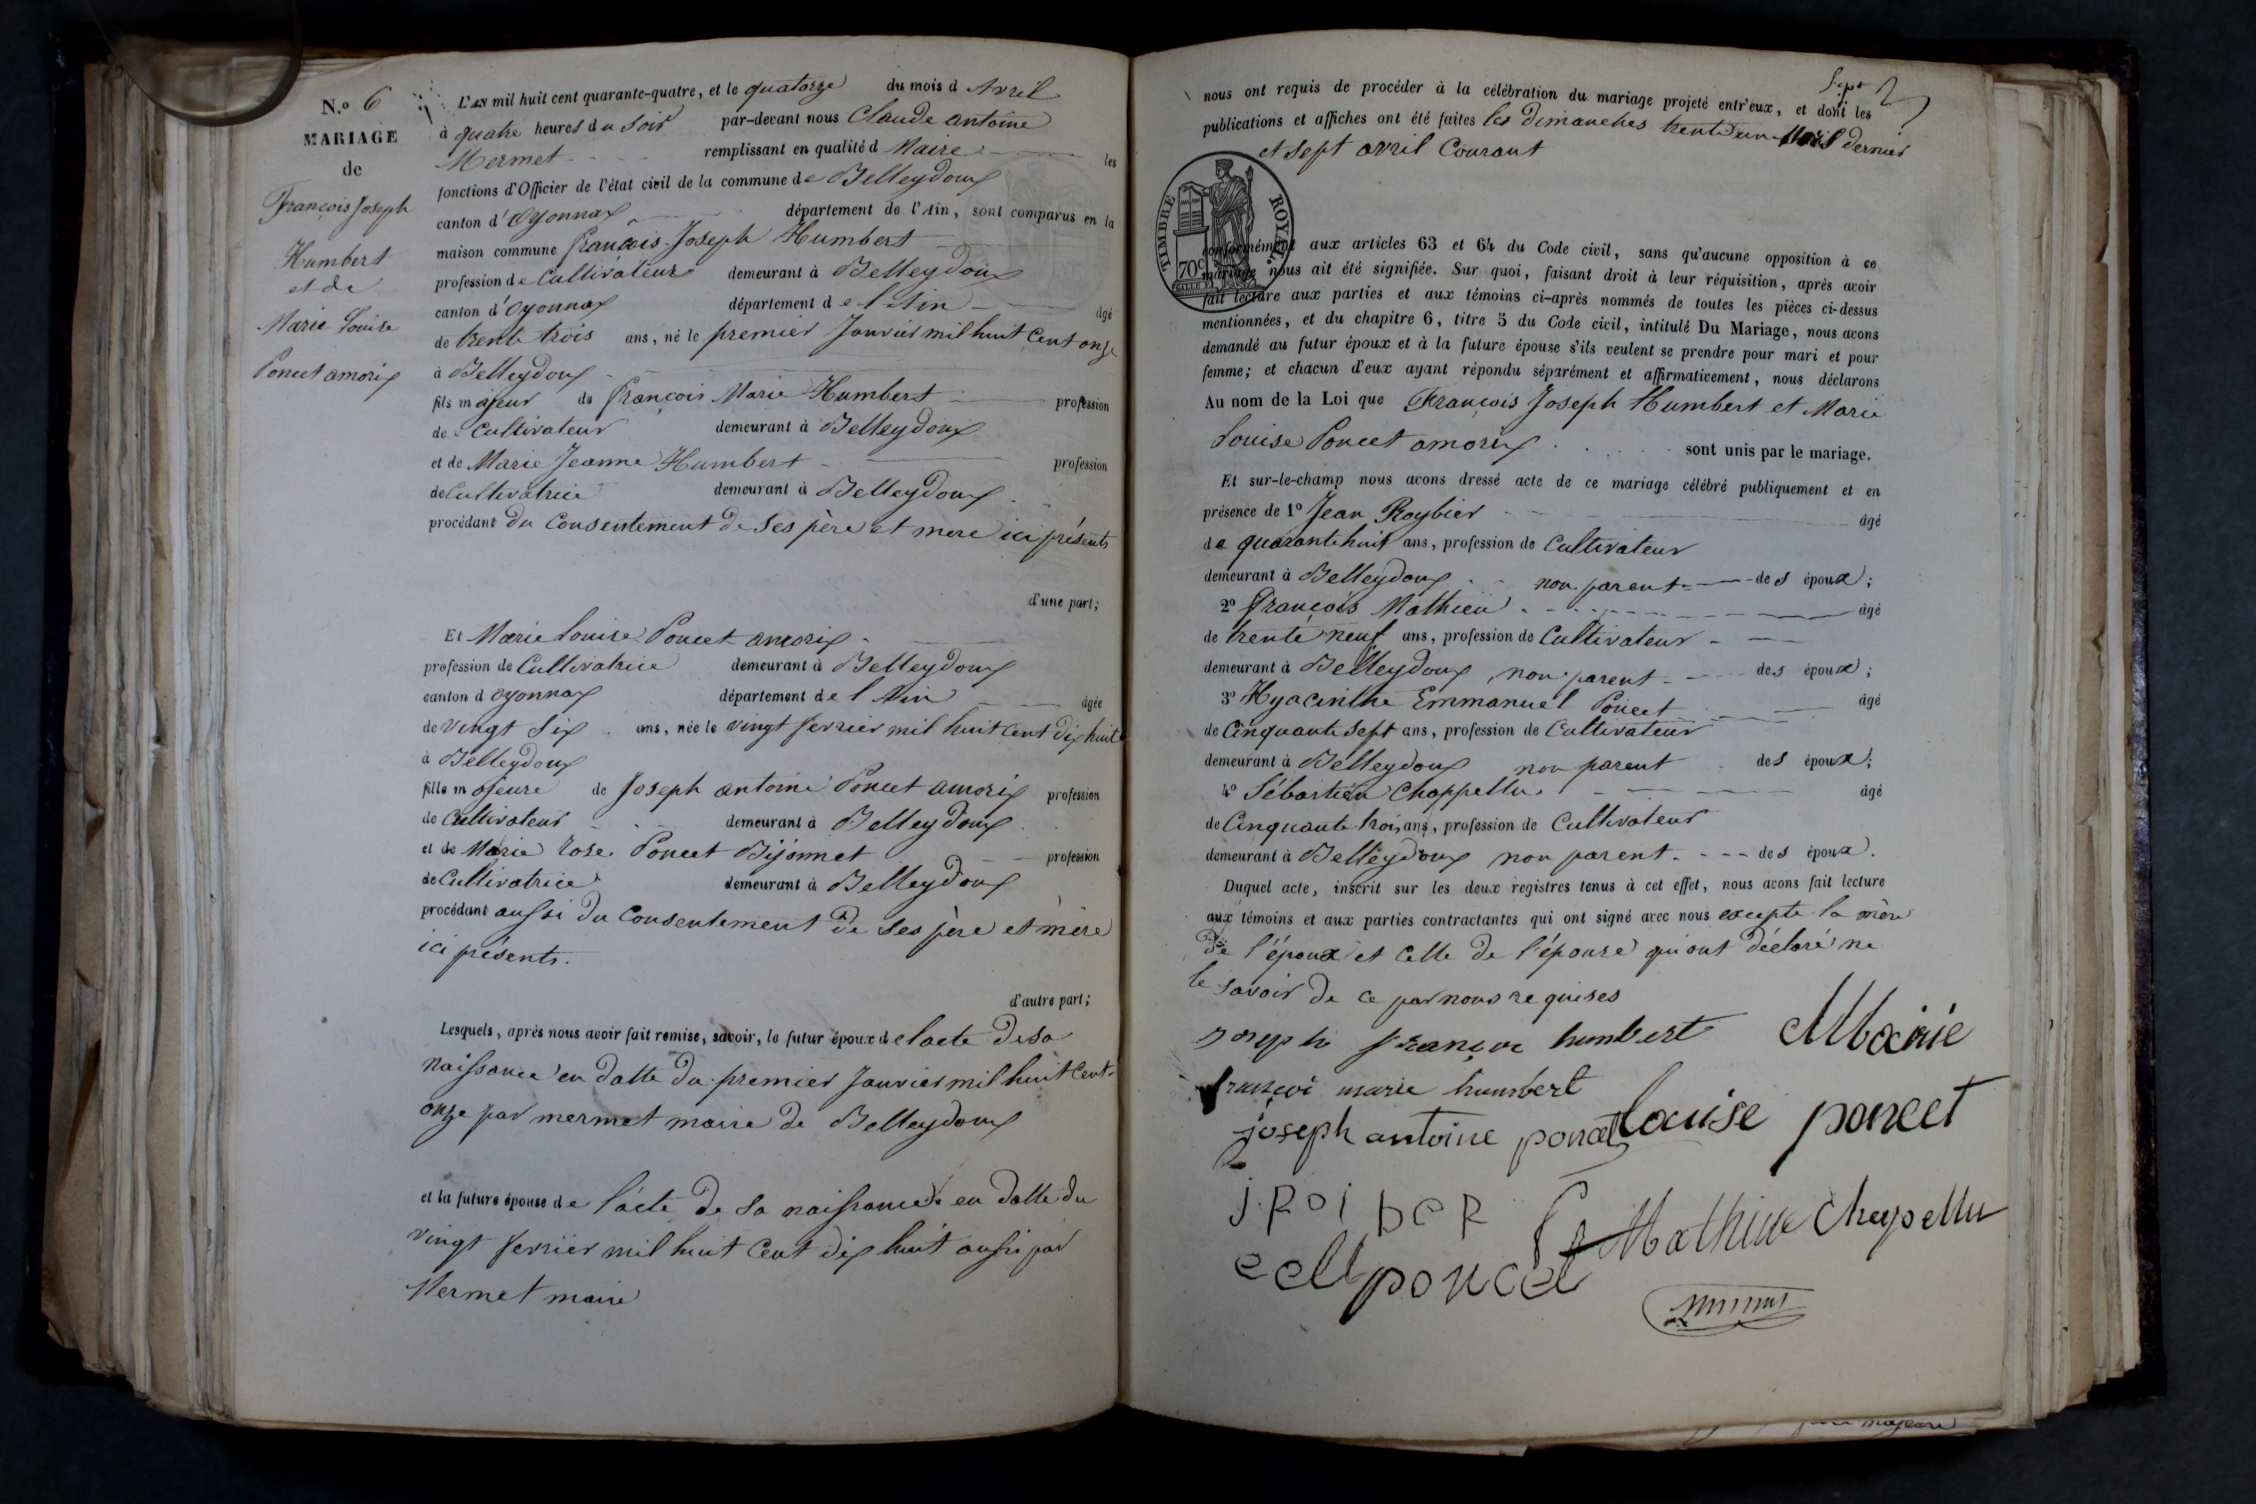 N.o 6
MARIAGE
de
François Joseph
Humbert
et de
Marie Louise
Poncet amorix
L'AN mil huit cent quarante-quatre, et le quatorze du mois d Avril
à quatre heures du soir par-devant nous Claude antoine
Mermet remplissant en qualité d Maire les
fonctions d'Officier de l'état civil de la commune de Belleydoux
canton d'oyonnax département de l'Ain, sont comparus en la
maison commune françois Joseph Humbert
profession de Cultivateur demeurant à Belleydoux
canton d'oyonnax département de l'Ain âgé
de trente trois ans, né le premier Janvier mil huit Cent onze
à Belleydoux
fils majeur de françois Marie Humbert profession
de Cultivateur demeurant à Belleydoux
et de Marie Jeanne Humbert profession
de Cultivatrice demeurant à Belleydoux
procédant du Consentement de ses père et mere ici présents
d'une part;
Et Marie Louise Poncet amorix
profession de Cultivatrice demeurant à Belleydoux
canton d oyonnax département de l Ain âgée
de vingt Six ans, née le vingt fevrier mil huit Cent dix huit
à Belleydoux
fille majeure de Joseph antoine Poncet amorix profession
de Cultivateur demeurant à Belleydoux
et de Marie Rose Poncet Bijonnet profession
de Cultivatrice demeurant à Belleydoux
procédant aussi du Consentement de ses père et mère
ici présents.
d'autre part;
Lesquels, après nous avoir fait remise, savoir, le futur époux de lacte de sa
naissance en datte du premier Janvier mil huit Cent
onze par mermet maire de Belleydoux
et la future épouse de l'acte de sa naissance en datte du
vingt fevrier mil huit Cent dix huit aussi par
Mermet maire
Sept
nous ont requis de procéder à la célébration du mariage projeté entr'eux, et dont les
publications et affiches ont été faites les dimanches trente un Mars dernier
et sept avril Courant
TIMBRE ROYAL.
70c
conformément aux articles 63 et 64 du Code civil, sans qu'aucune opposition à ce
mariage nous ait été signifiée. Sur quoi, faisant droit à leur réquisition, après avoir
fait lecture aux parties et aux témoins ci-après nommés de toutes les pièces ci-dessus
mentionnées, et du chapitre 6, titre 5 du Code civil, intitulé Du Mariage, nous avons
demandé au futur époux et à la future épouse s'ils veulent se prendre pour mari et pour
femme; et chacun d'eux ayant répondu séparément et affirmativement, nous déclarons
Au nom de la Loi que François Joseph Humbert et Marie
Louise Poncet amorix sont unis par le mariage.
Et sur-le-champ nous avons dressé acte de ce mariage célébré publiquement et en
présence de 1o Jean Roybier âgé
de quarante huit ans, profession de Cultivateur
demeurant à Belleydoux non parent des époux;
2o François Mathieu âgé
de trente neuf ans, profession de Cultivateur
demeurant à Belleydoux, non parent des époux;
3o Hyacinthe Emmanuel Poncet âgé
de Cinquante sept ans, profession de Cultivateur
demeurant à Belleydoux non parent des époux;
4o Sébastien Chappellu âgé
de Cinquante trois ans, profession de Cultivateur
demeurant à Belleydoux non parent des époux.
Duquel acte, inscrit sur les deux registres tenus à cet effet, nous avons fait lecture
aux témoins et aux parties contractantes qui ont signé avec nous excepte la mère
de l'époux et celle de l'épouse qui ont déclaré ne
le savoir de ce par nous requises
joseph françoi humbert Marie
françoi marie humbert
joseph antoine poncet Louise poncet
j. Roi bER
Mathieu Chapellu
poncet